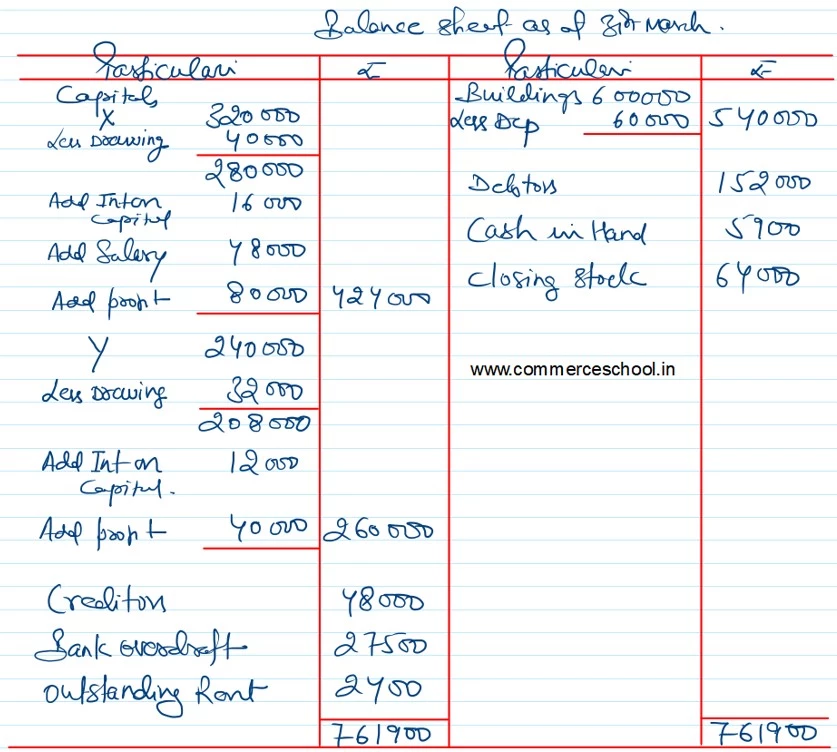 Balance sheet as of 31st March.
Particulars ₹ Particulars ₹
Capitals
X 320000
Less Drawing 40000
280000
Add Int on Capital 16000
Add Salary 48000
Add profit 80000 424000
Y 240000
Less Drawing 32000
208000
Add Int on Capital. 12000
Add profit 40000 260000
Creditors 48000
Bank overdraft 27500
Outstanding Rent 2400
761900
Buildings 600000
Less Dep 60000 540000
Debtors 152000
Cash in Hand 5900
Closing stock 64000
www.commerceschool.in
761900